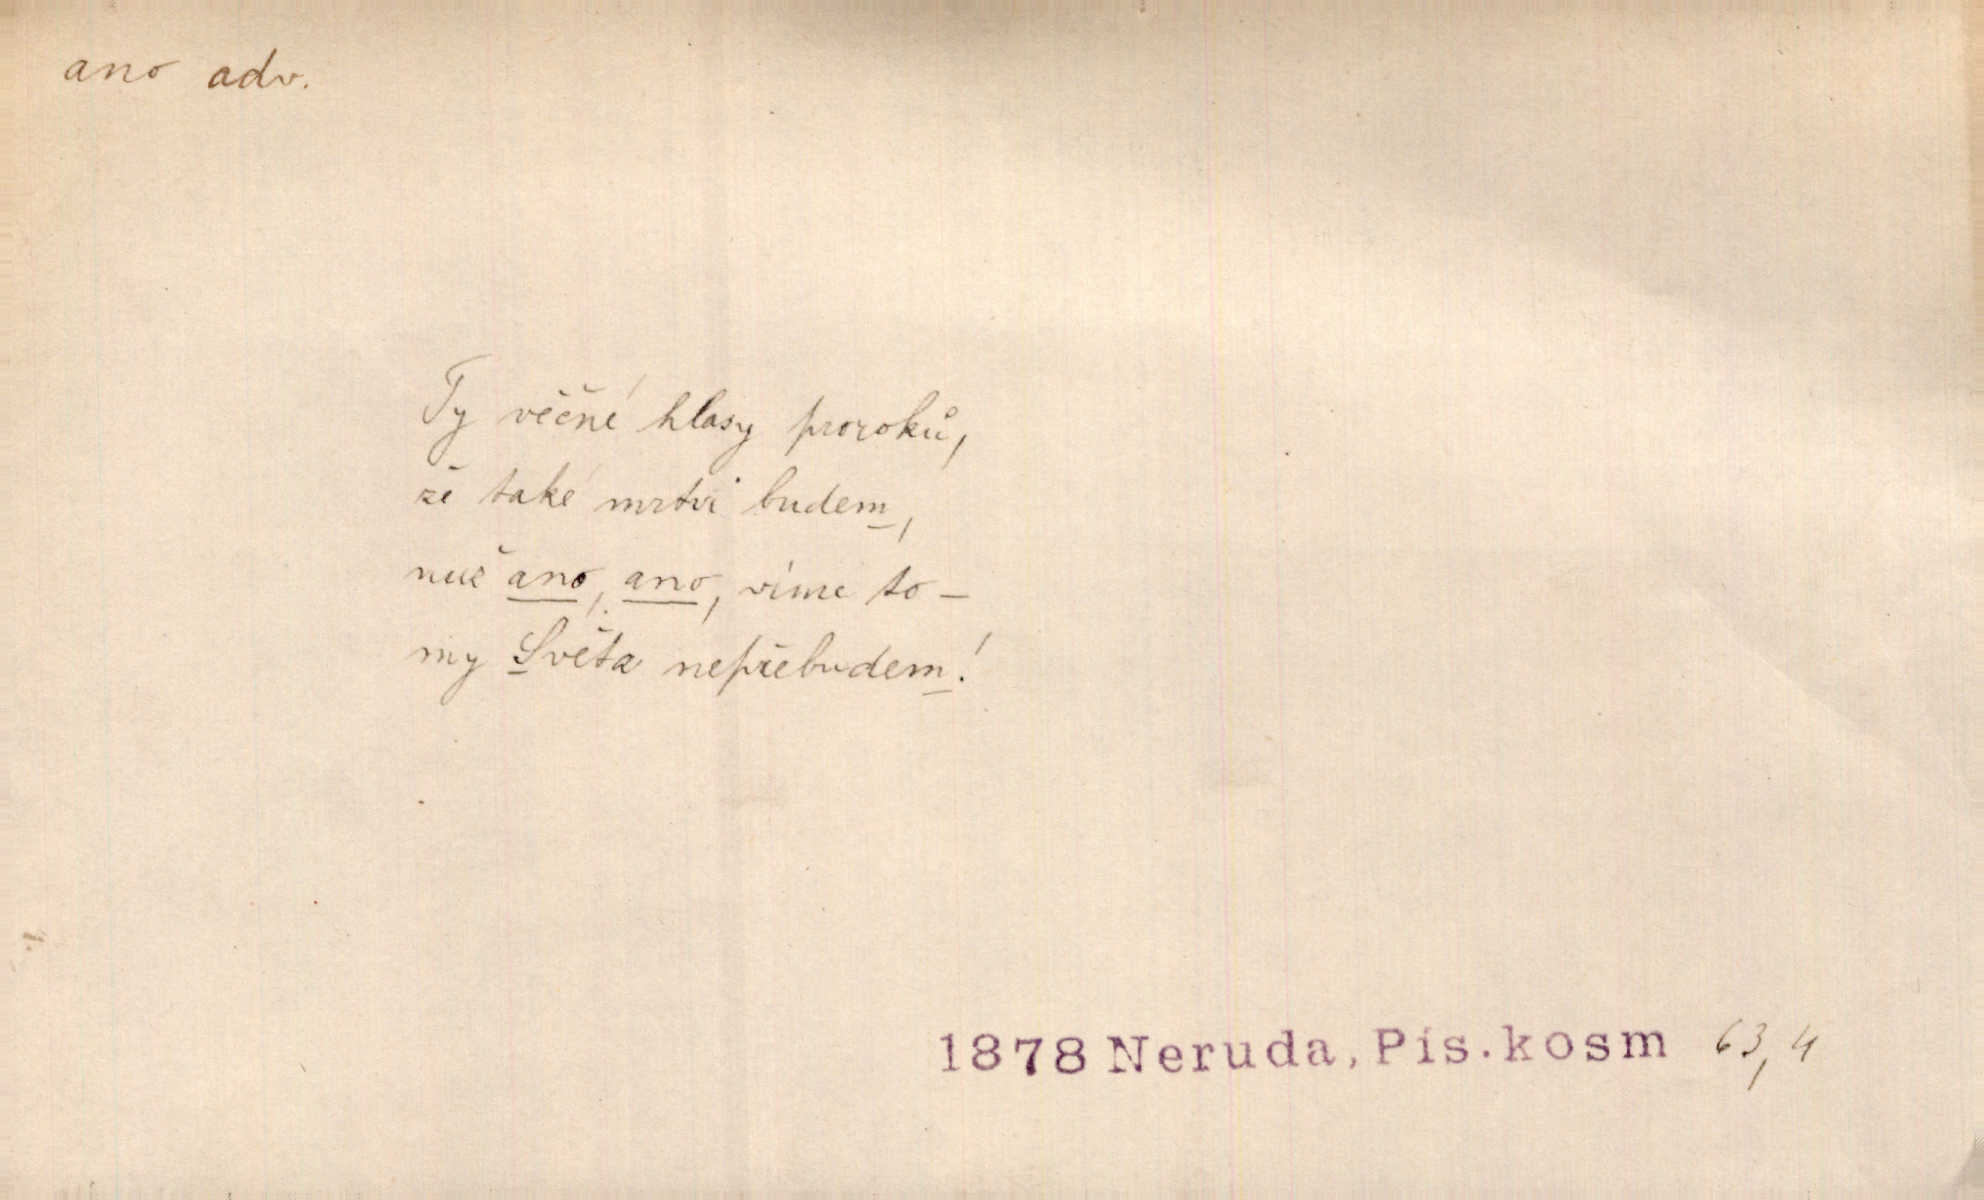 ano adv.
Ty věčné hlasy proroků,
že také mrtvi budem,
nuž ano, ano, víme to –
my Světa nepřebudem!
1878 Neruda, Pís. kosm 63,4